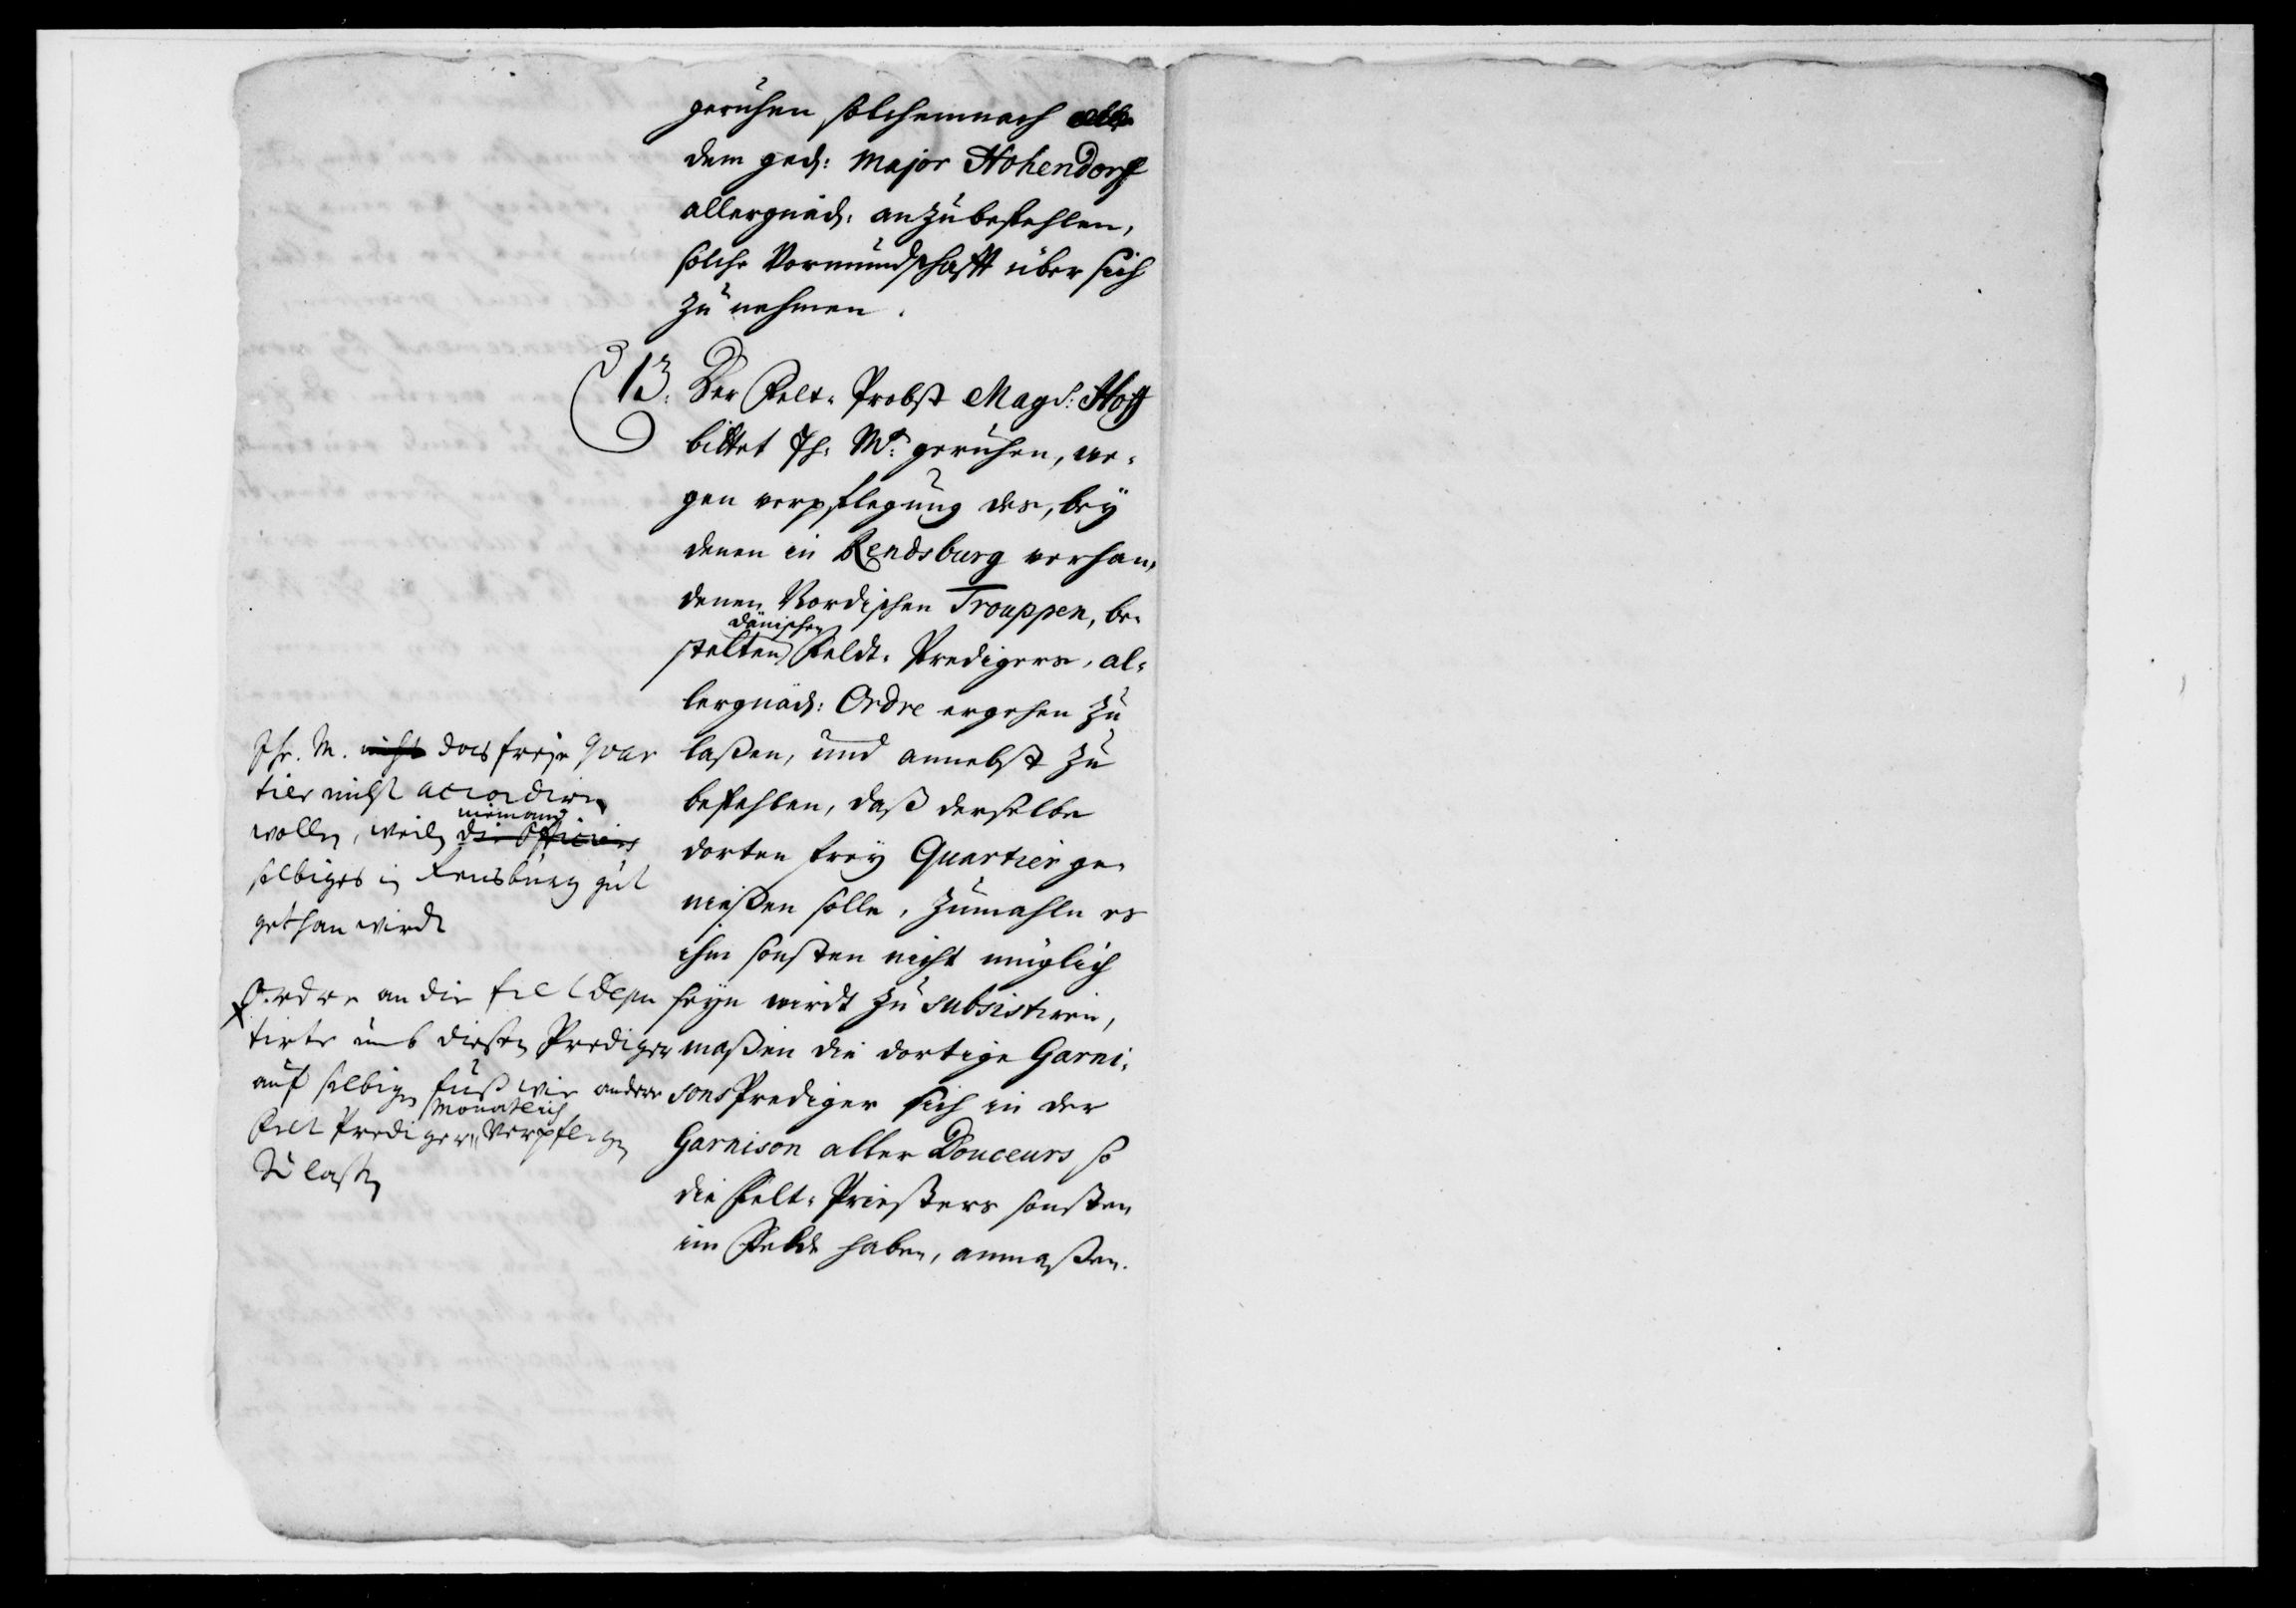 geruhen solchemnach
dem ged: Major Hohendorff
allergnäd: anzubefehlen,
solche Vormundschafft über sich
zu nehmen.
13. Der Felt-Probst Mag: Hoff
bittet Jh: M: geruhen, we-
gen verpflegung des, bey
denen in Rendsburg verhan-
denen Nordischen Trouppen, be-
dänischen
stelten Feldt-Predigers, al-
lergnäd: Ordre ergehen zu
laßen, und annebst zu
befehlen, daß derselbe
dorten frey Quartier ge-
nießen solle, zumahln es
ihm sonsten nicht müglich
seyn wirdt zu subsistiren,
maßen die dortige Garni-
sons Prediger sich in der
Garnison aller Douceurs so
die Felt-Priesters sonsten
im Felde haben, anmaßen.
Ihr. M. nicht das freye Quar
tier nicht accordiren
niemand
wollen, weiln die Officiers
selbiges in Rensburg gut
gethan wirdt
Ordre an die felt depu
tirte umb diesen Prediger
auf selbigen fuß wie andere
Monatlich
Felt Prediger Verpflegen
zu laßen